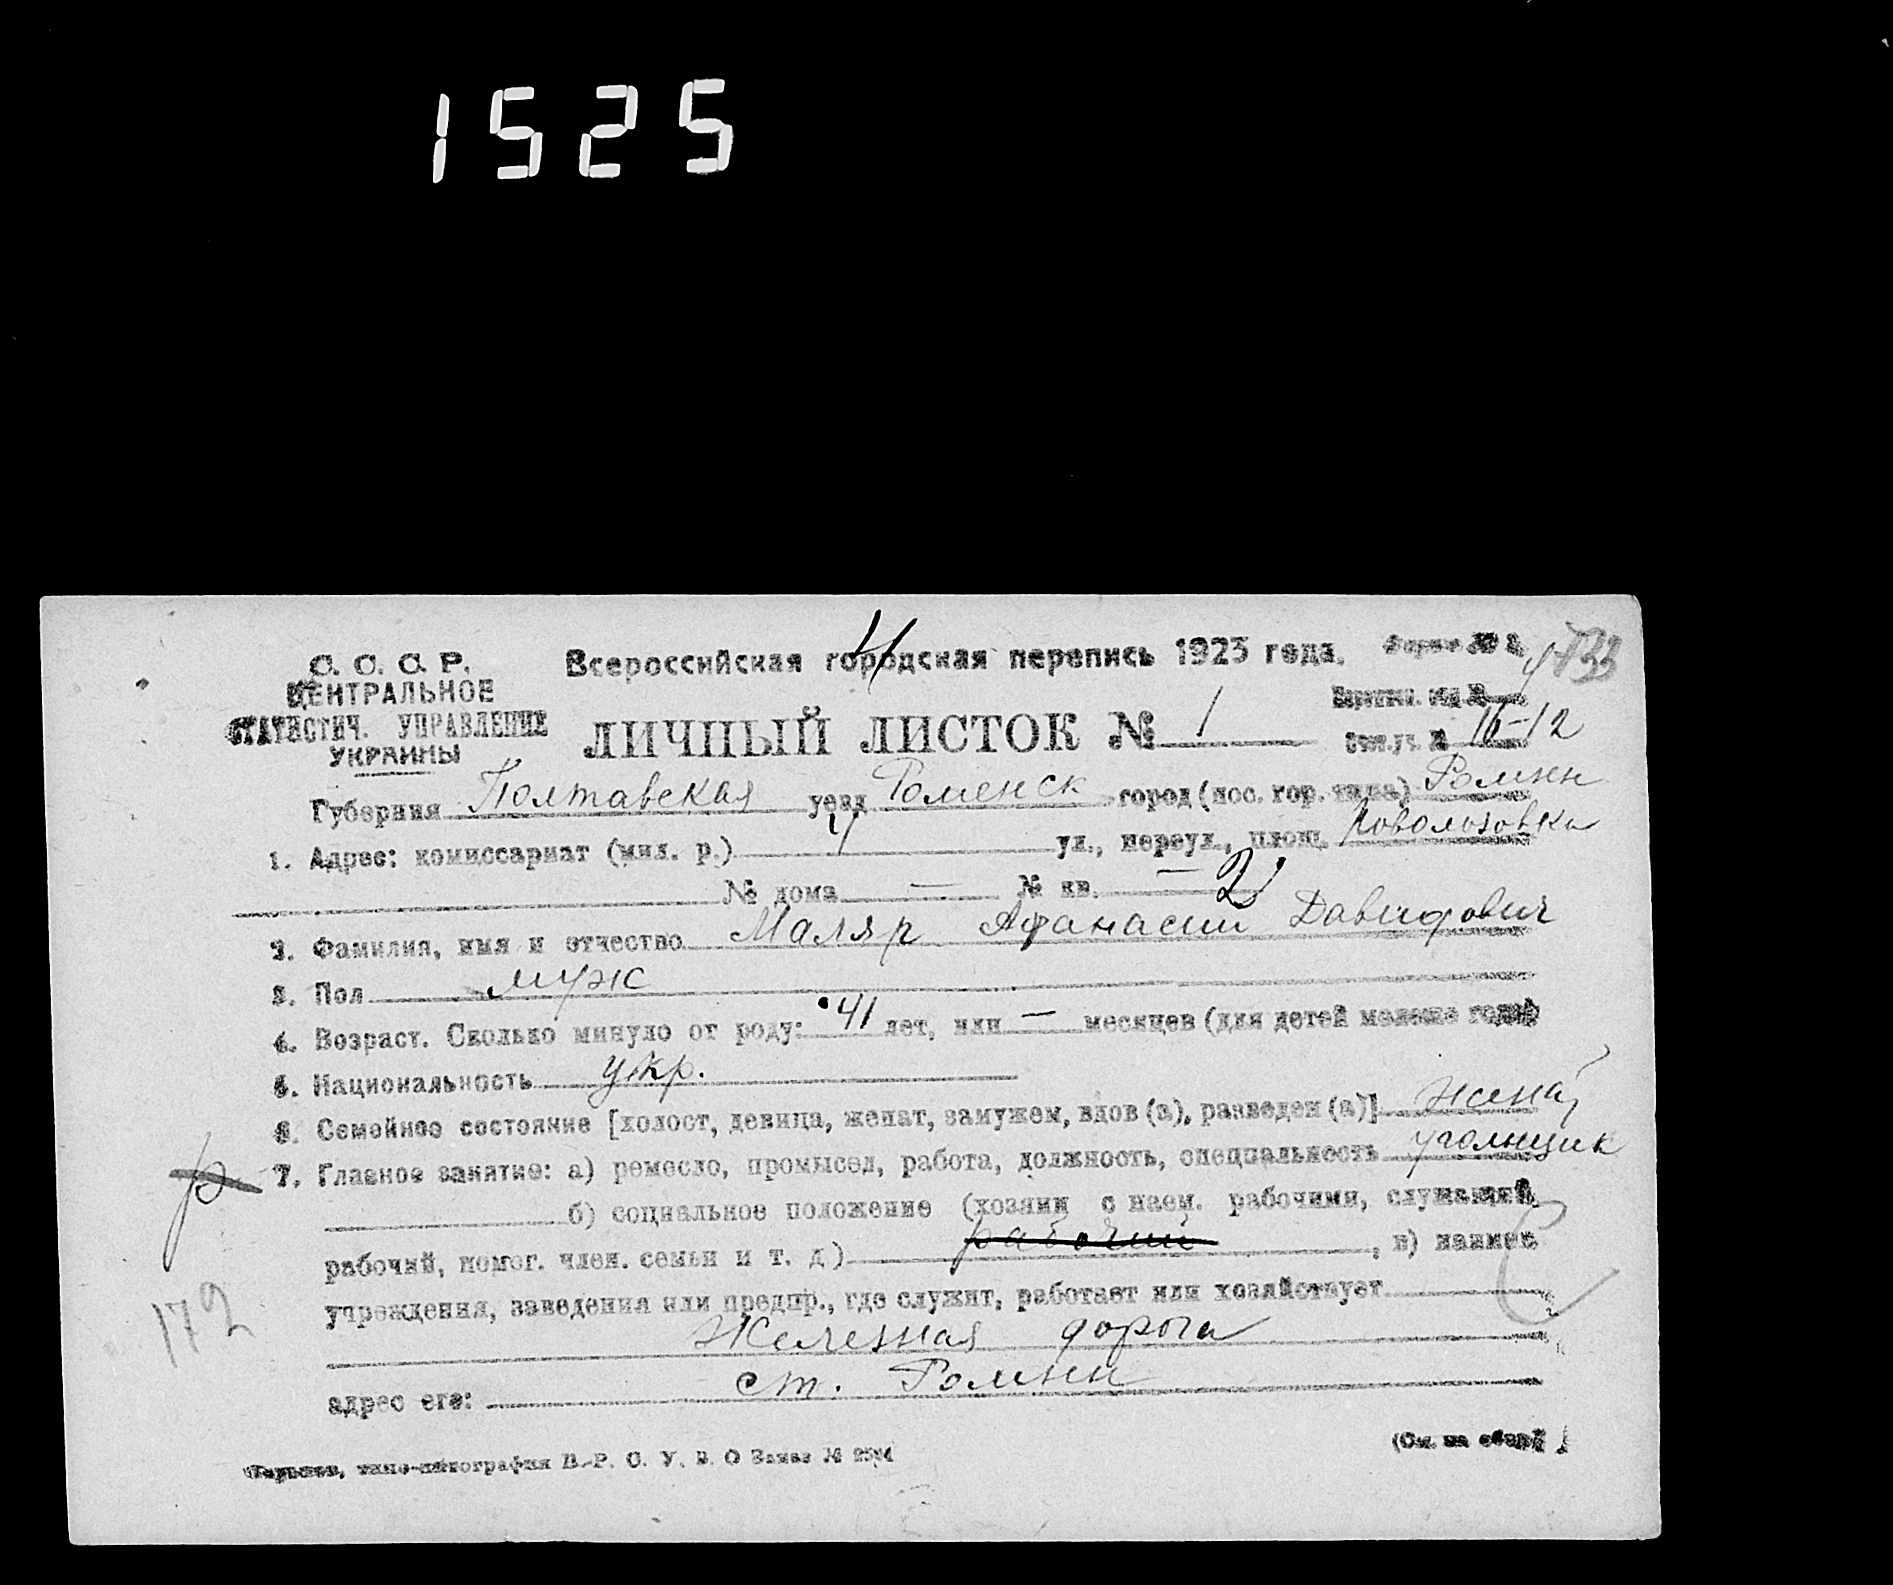 1525
С. С. С. Р.
ЦЕНТРАЛЬНОЕ
СТАТИСТИЧ. УПРАВЛЕНИЕ
УКРАИНЫ
Всероссийская городская перепись 1923 года.
Форма № 2.
ЛИЧНЫЙ ЛИСТОК № 1
16-12
Губерния Полтавская уезд Роменск город (пос. гор. типа) Ромнн
1. Адрес: комиссариат (мил. р.) ул., переул., площ.
№ дома — № кв. — 2
2. Фамилия, имя и отчество Маляр Афанасий Давидович
3. Пол муж
4. Возраст. Сколько минуло от роду: 41 лет, или — месяцев (для детей моложе года)
5. Национальность укр.
6. Семейное состояние [холост, девица, женат, замужем, вдов (а), разведен (а)] жена
7. Главное занятие: а) ремесло, промысел, работа, должность, специальность угольщик
б) социальное положение (хозяин с наем. рабочими, служащий,
рабочий, помог. член. семьи и т. д) рабочий , в) наимен.
учреждения, заведения или предпр., где служит, работает или хозяйствует
Железная дорога
адрес его: ст. Ромнн
172
(См. на обор.)